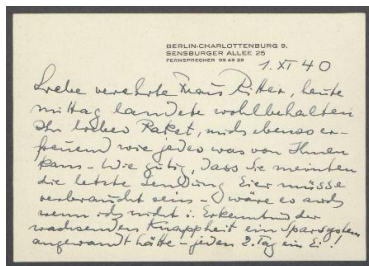 BERLIN-CHARLOTTENBURG 9.
SENSBURGER ALLEE 25
FERNSPRECHER 99 49 29
1. XI 40
Liebe verehrte Frau Ritter, heute
mittag landete wohlbehalten
Ihr liebes Paket, mich ebenso er-
freuend wie jedes was von Ihnen
kam – Wie gütig, dass Sie meinten
die letzte Sendung Eier müsse
verbraucht sein – wäre es auch
wenn ich nicht i. Erkenntnis der
wachsenden Knappheit ein Sparsystem
angewandt hätte – jeden 2. Tag ein Ei!